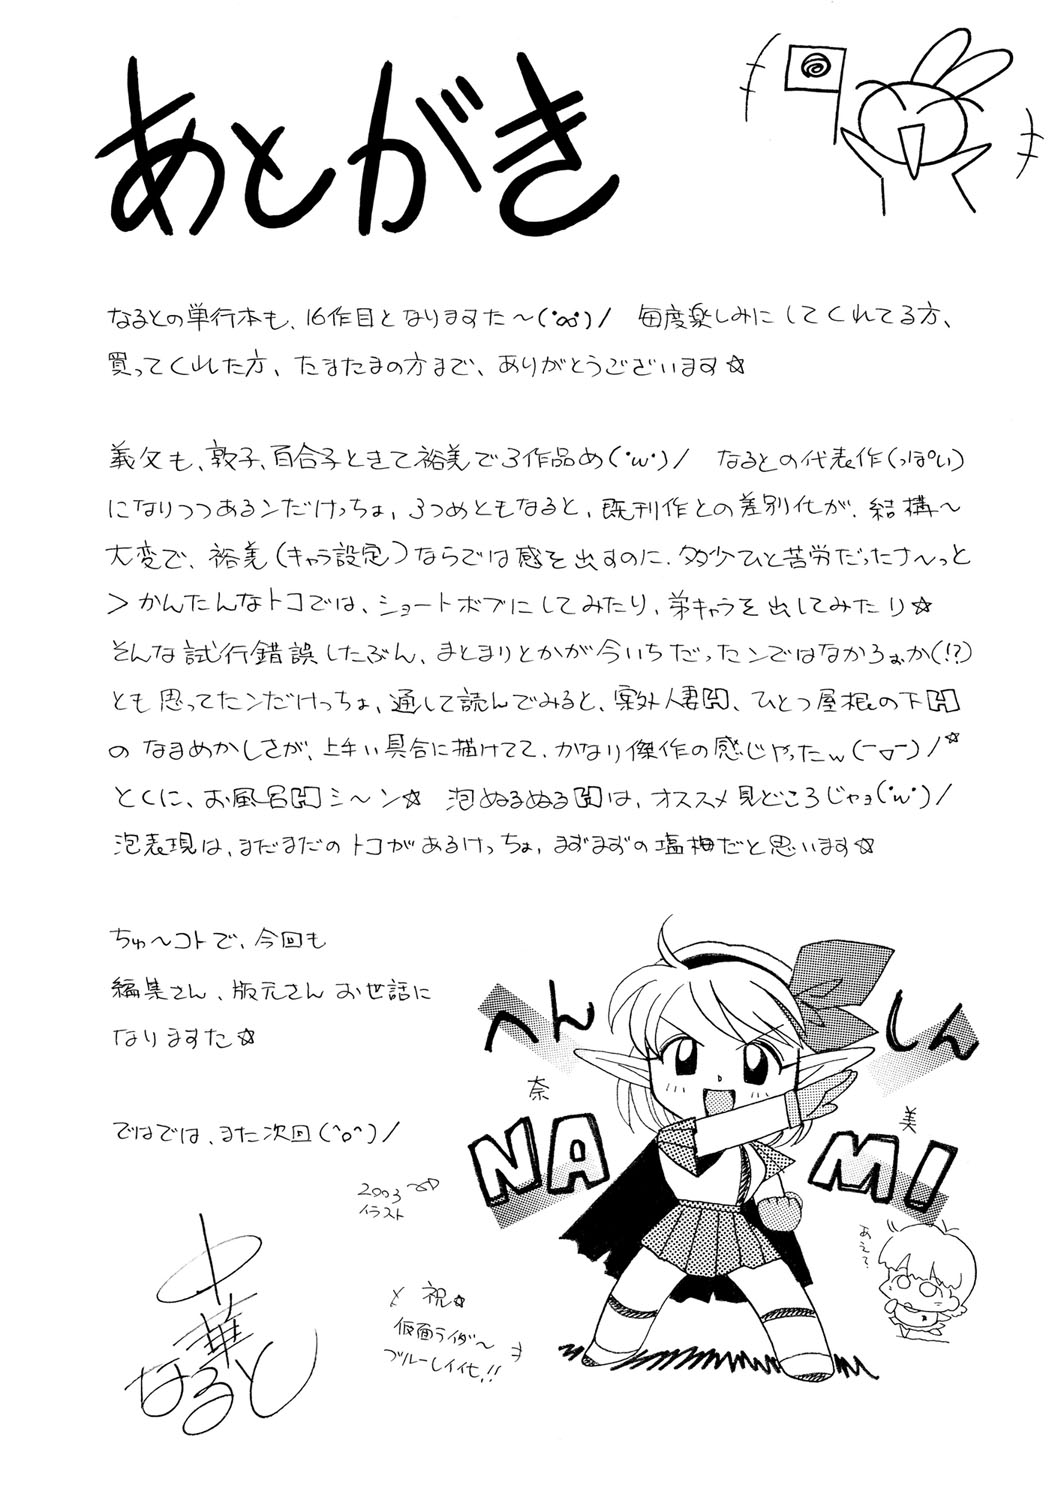 あとがき
なるとの単行本も、16作目となりますた～(･∞･)/ 毎度楽しみにしてくれてる方、
買ってくれた方、たまたまの方まで、ありがとうございます☆
義父も、敦子、百合子ときて裕美で3作品め(･ω･)/ なるとの代表作(っぽい)
になりつつあるンだけっちょ、3つめともなると、既刊作との差別化が、結構～
大変で、裕美(キャラ設定)ならでは感を出すのに、多少ひと苦労だったナ～っと
＞かんたんなトコでは、ショートボブにしてみたり、弟キャラを出してみたり☆
そんな試行錯誤したぶん、まとまりとかが今いちだったンではなかろぉか(!?)
とも思ってたンだけっちょ、通して読んでみると、案外人妻H、ひとつ屋根の下H
のなまめかしさが、上手い具合に描けてて、かなり傑作の感じやったw(￣▽￣)/☆
とくに、お風呂Hシ～ン☆ 泡ぬるぬるHは、オススメ見どころじゃョ(･ω･)/
泡表現は、まだまだのトコがあるけっちょ、まずまずの塩梅だと思います☆
ちゅ～コトで、今回も
編集さん、版元さんお世話に
なりますた☆
ではでは、また次回(^o^)/
へんしん
奈美
NAMI
2003
イラスト
あえて?
祝☆
仮面ライダ～
ブルーレイ化!!
中華なると